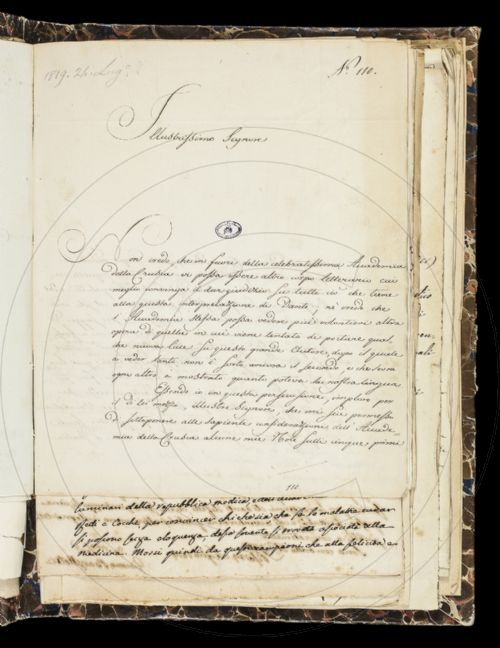 1819. 24. Lug.º
Nº 110.
Illustrissimo Signore
Non credo, che in fuori della celebratissima Accademia
della Crusca vi possa essere altro corpo letterario cui
meglio convenga il dar giudizio su tutto ciò che tiene
alla giusta interpretazione di Dante; nè credo che
l'Accademia stessa possa vedere più volentieri altra
opera di quelle in cui viene tentato di portare qual
che nuova luce su questo grande Autore, dopo il quale
a veder tanto non è surto ancora il secondo, e che sovra
ogni altro à mostrato quanto poteva la nostra lingua.
Essendo io in questa persuasione, imploro per
il di lei mezzo, illustre Signore, che mi sia permesso
di sottoporre alla sapiente considerazione dell'Accade
mia della Crusca alcune mie Note sulli cinque primi
110
luminari della repubblica medica,
che le malattie curar
si possono senza eloquenza,
medicina. Mossi quindi da